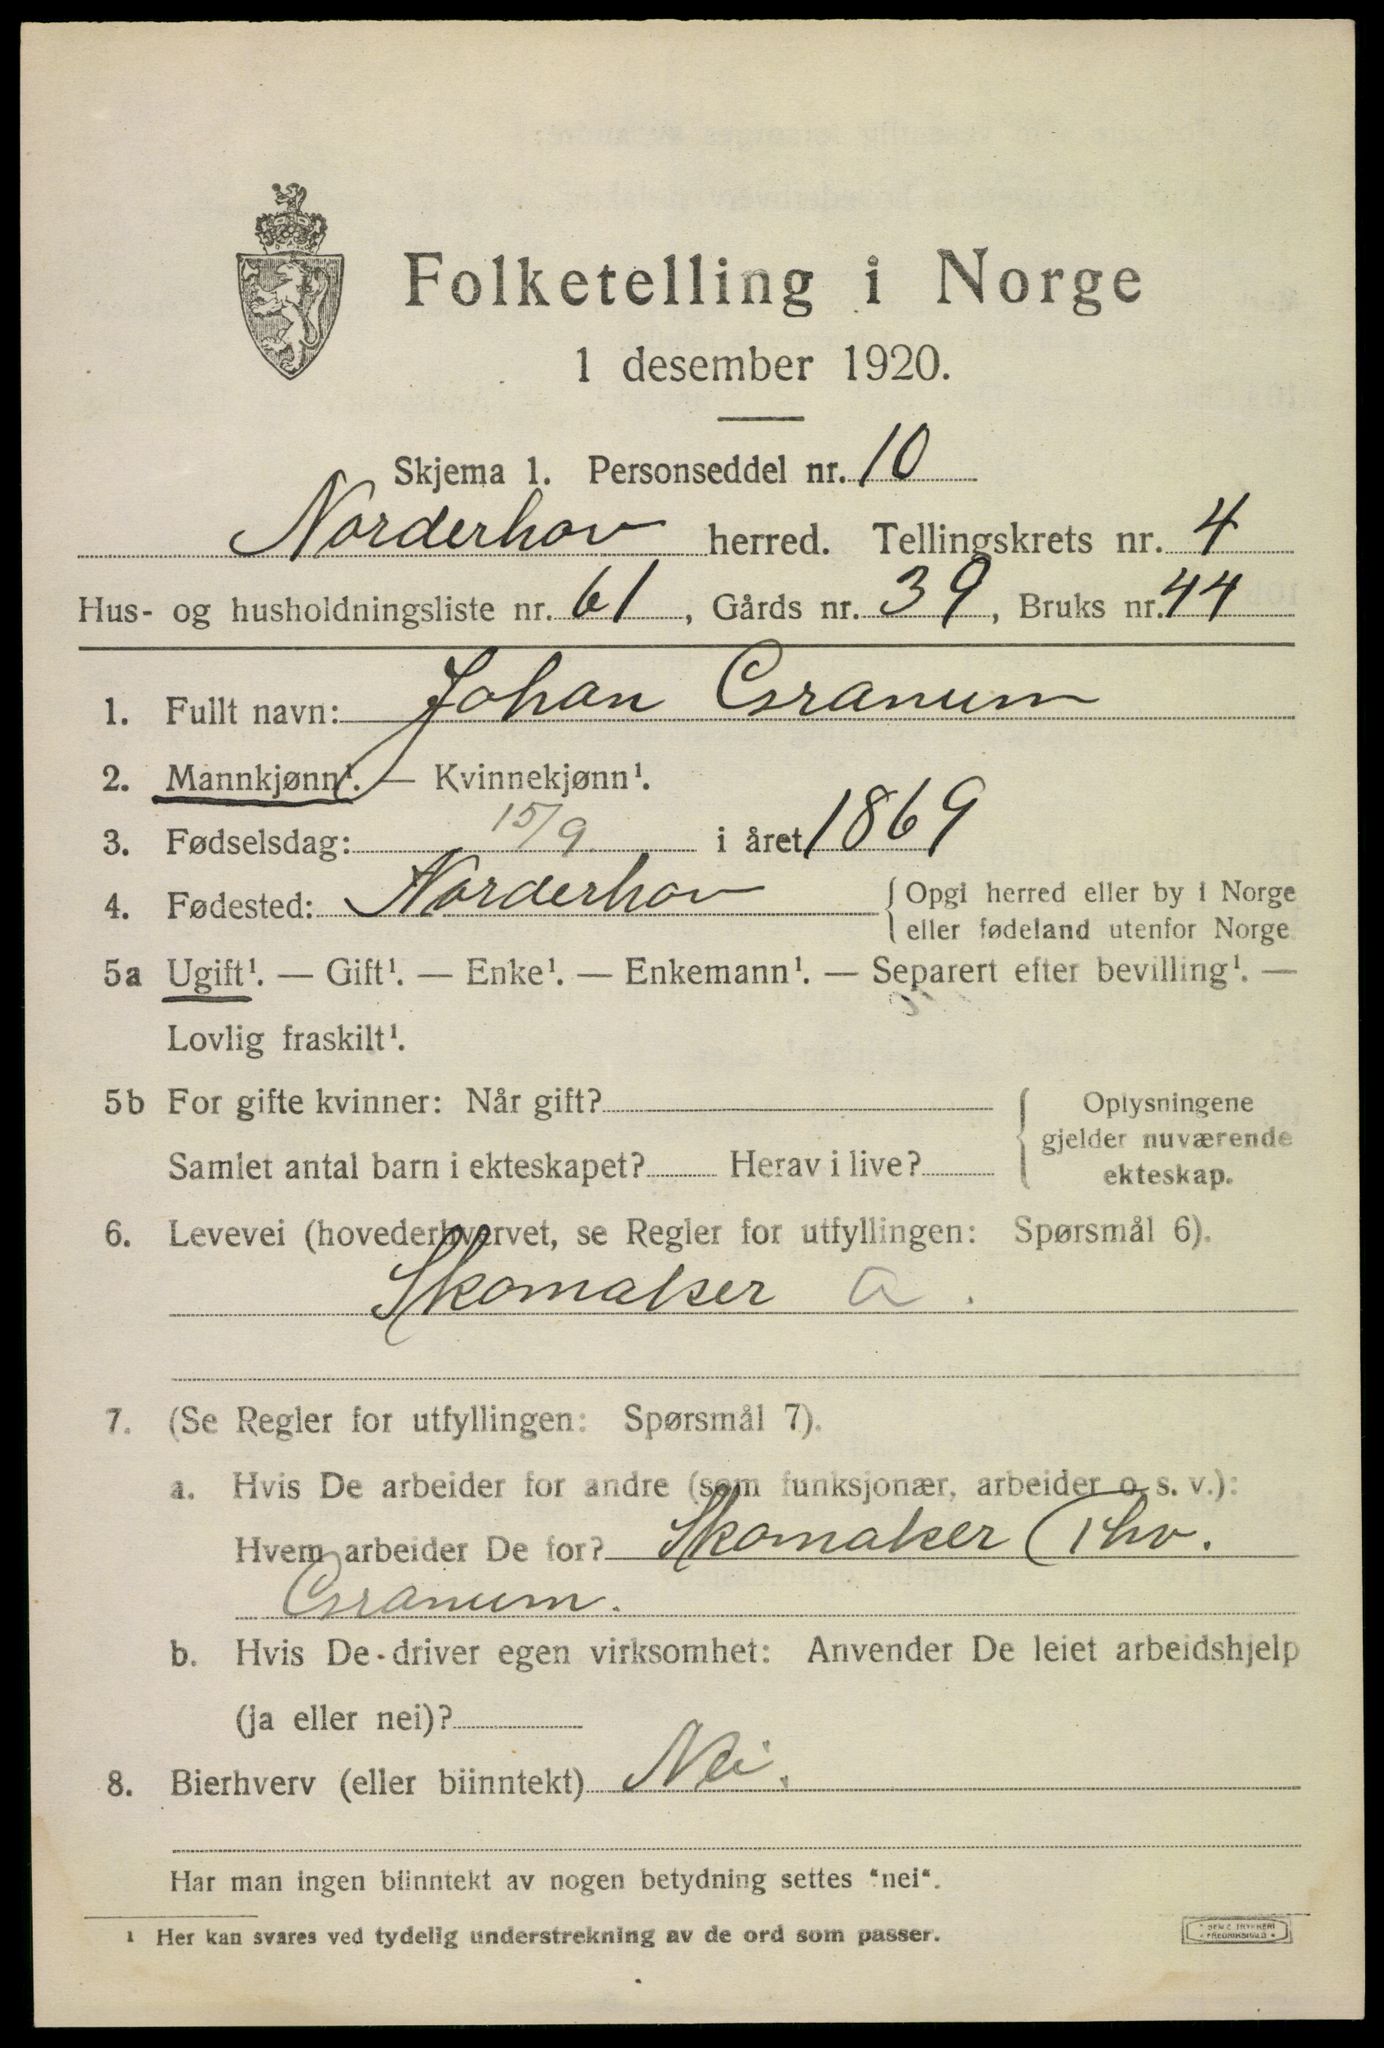 Folketelling i Norge
1 desember 1920.
Skjema 1. Personseddel nr. 10
Norderhov herred. Tellingskrets nr. 4
Hus- og husholdningsliste nr. 61, Gårds nr. 39, Bruks nr. 44
1. Fullt navn: Johan Granum
2. Mannkjønn¹. — Kvinnekjønn¹.
3. Fødselsdag: 15/9. i året 1869
4. Fødested: Norderhov {Opgi herred eller by i Norge
eller fødeland utenfor Norge
5a Ugift¹. — Gift¹. — Enke¹. — Enkemann¹. — Separert efter bevilling¹. —
Lovlig fraskilt¹.
5b For gifte kvinner: Når gift? { Oplysningene
gjelder nuværende
Samlet antal barn i ekteskapet? Herav i live?
ekteskap.
6. Levevei (hovederhvervet, se Regler for utfyllingen: Spørsmål 6).
Skomaker a.
7. (Se Regler for utfyllingen: Spørsmål 7).
a. Hvis De arbeider for andre (som funksjonær, arbeider o. s. v.):
Hvem arbeider De for? Skomaker Thv.
Granum.
b. Hvis De driver egen virksomhet: Anvender De leiet arbeidshjelp
(ja eller nei)?
8. Bierhverv (eller biinntekt) Nei.
Har man ingen biinntekt av nogen betydning settes "nei".
¹ Her kan svares ved tydelig understrekning av de ord som passer.